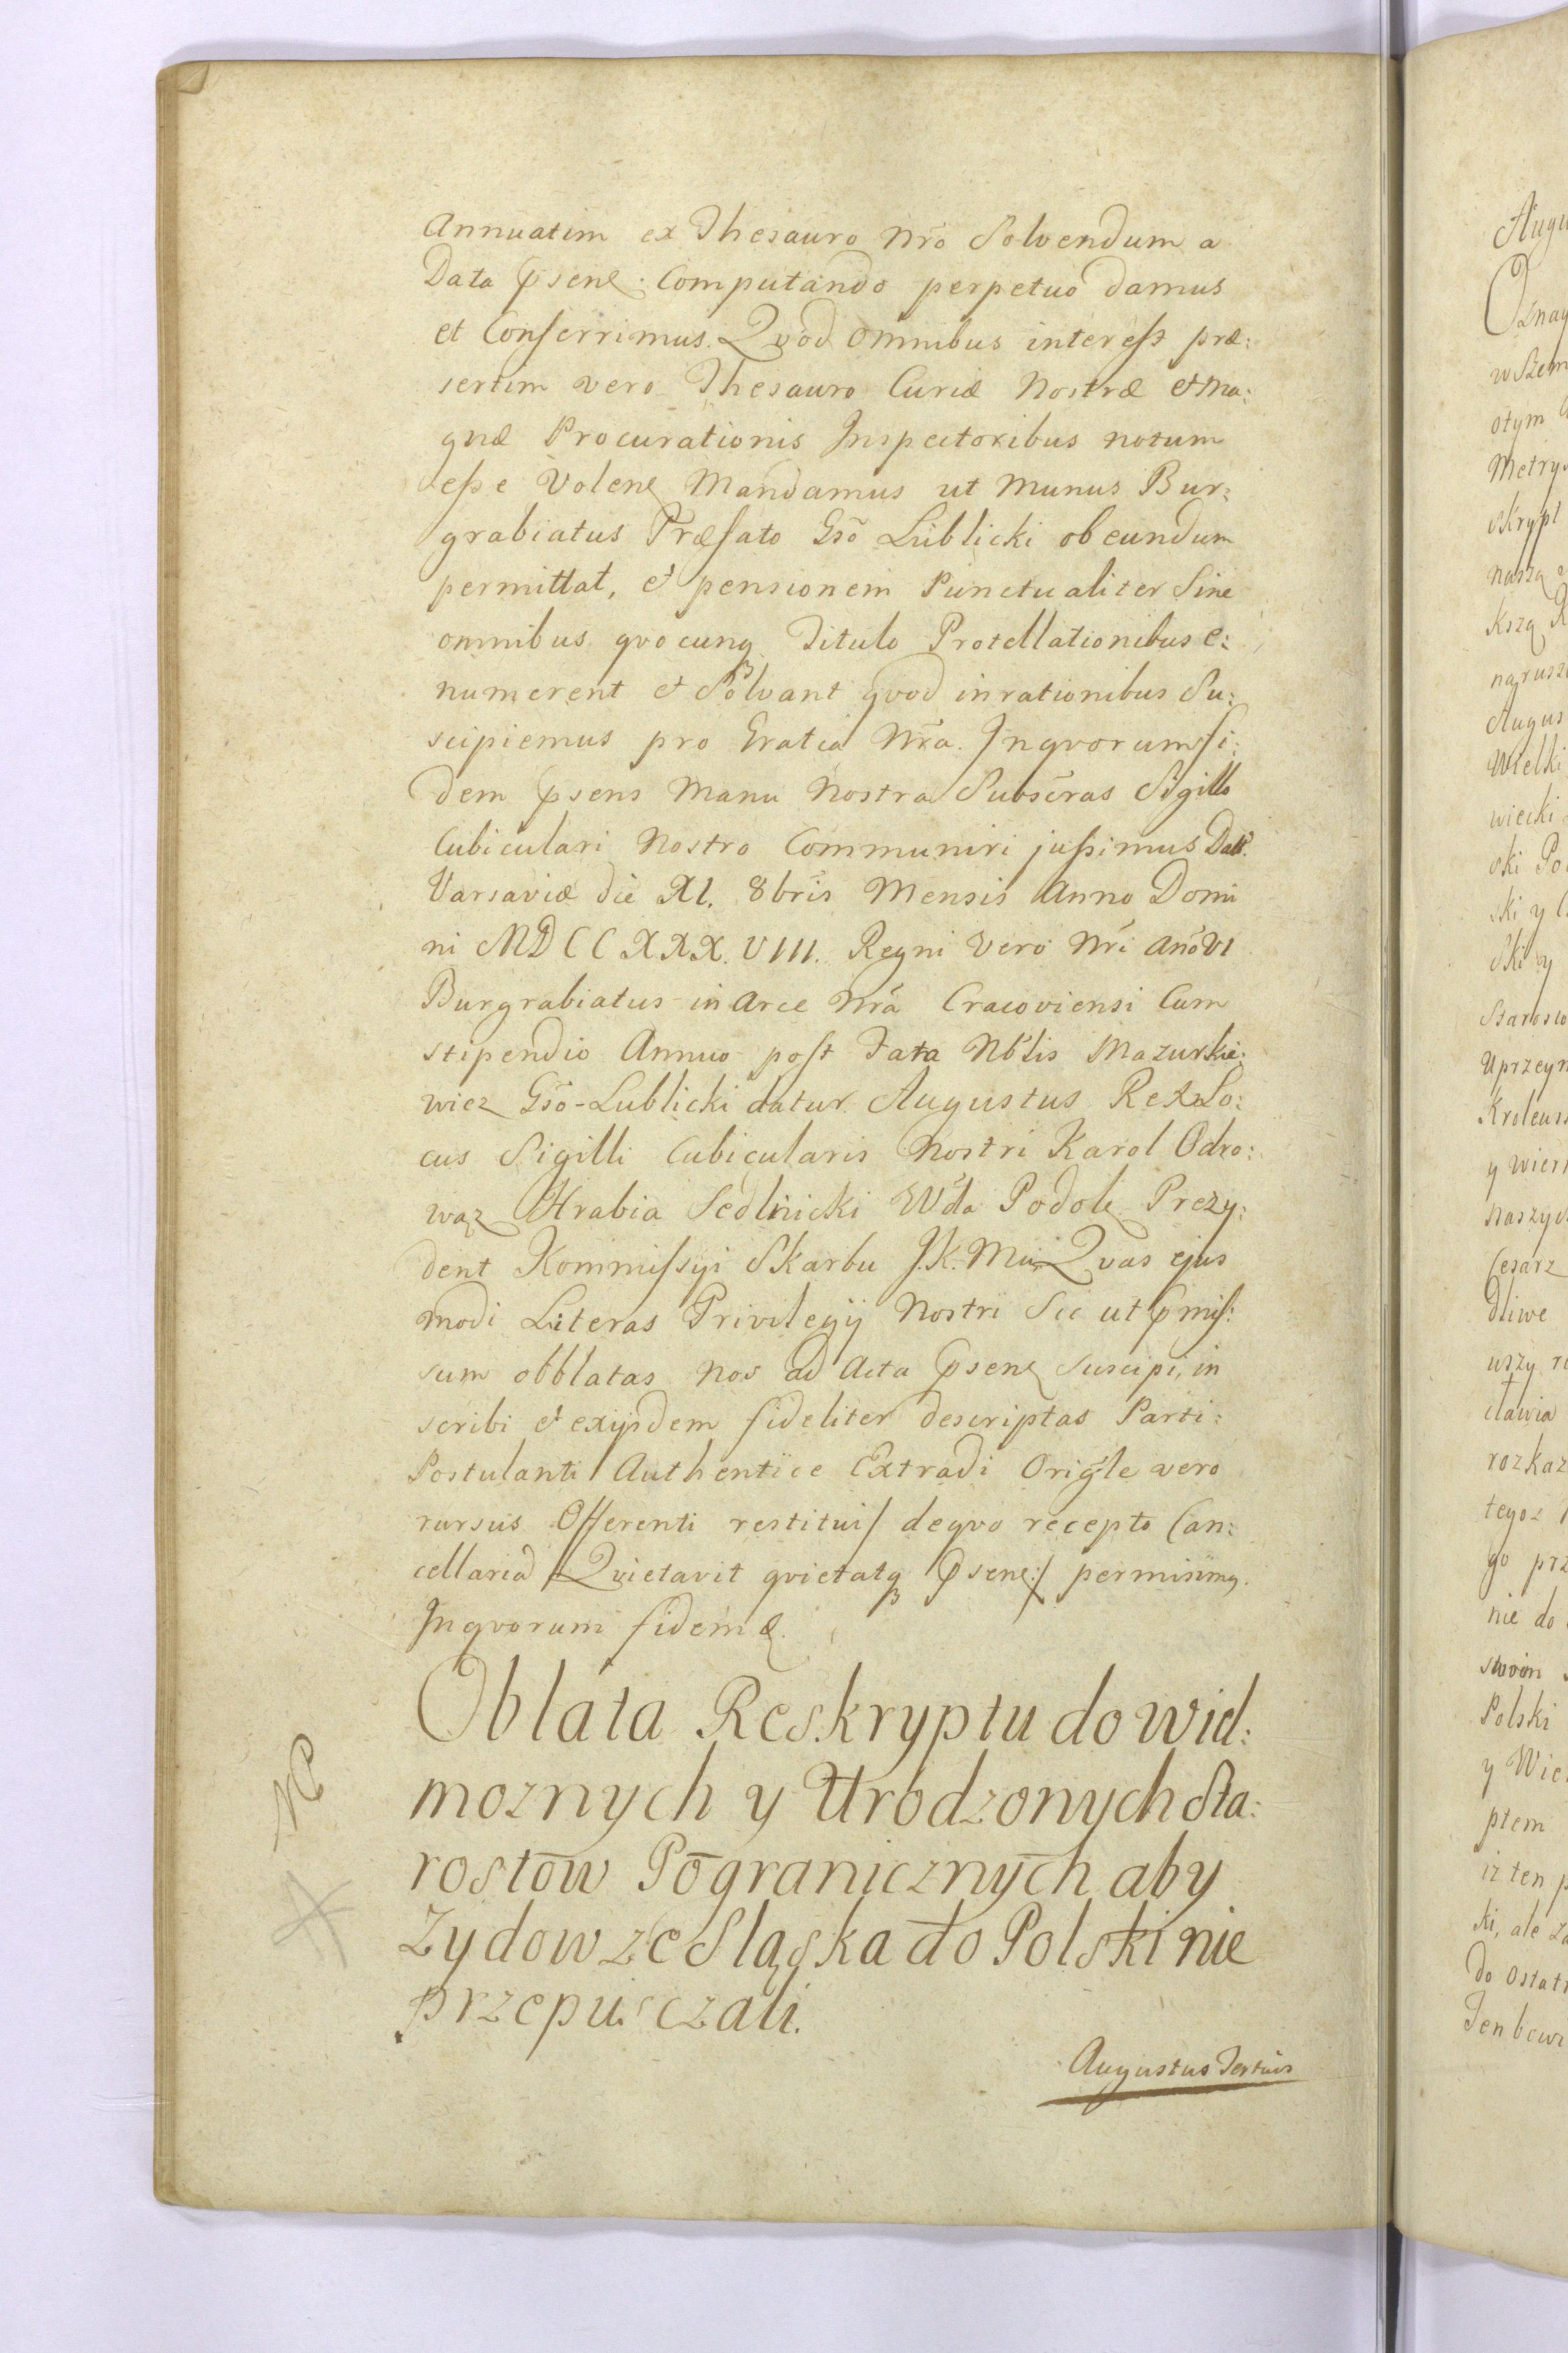 Annuatim ex Thesauro Nr̃o Solvendum a
Data p̱senꝭ. Computando perpetuo damus
et Conferrimus. Qvod omnibus interest præ:
sertim vero Thesauro Curiæ Nostræ et Ma:
gnæ Procurationis Inspectoribus notum
eſse Volenꝭ Mandamus ut Munus Bur:
grabiatus Præfato Gsõ Lublicki obeundum
permittat, et pensionem Punctualiter Sine
omnibus qvocunqꝫ Titulo Protellationibus e:
numerent et Solvant qvod in rationibus Su:
scipiemus pro Gratia Nr̃a. In qvorum fi:
dem p̱sens Manu Nostra Subscr̃as Sigillo
Cubiculari Nostro Communiri juſsimus Datt.
Varsaviæ die XI. 8bris Mensis Anno Domi
ni MDCCXXX.VIII. Regni Vero Nr̃i Anõ VI
Burgrabiatus in Arce Nr̃a Cracoviensi Cum
stipendio Annuo post Fata Nb̃lis Mazurkie:
wicz Gsõ Lublicki datur. Augustus Rex Lo:
cus Sigilli Cubicularis Nostri Karol Odro:
wąz Hrabia Sedlnicki Wda Podolꝭ Prezy:
dent Kommiſsyi Skarbu J.K.Mci Qvas ejus
modi Literas Privilegij Nostri Sic ut p̱miſ:
sum obblatas Nos ad Acta p̱senꝭ suscipi, in
scribi et exijsdem fideliter descriptas Parti:
Postulanti Authentice Extradi Orig̃le vero
rursus Offerenti restitui/ deqvo recepto Can:
cellariã Qvietavit qvietatqꝫ p̱senꝭ:/ permisimꝰ.
In qvorum fidem &.
Oblata Reskryptu do Wiel:
moznych y Urodzonych Sta:
rostow Pogranicznych aby
Zydow ze Sląska do Polski nie
przepusczali.
NB
Augustus Tertius
Augu
Oznay
wszem
otym
Metry
skrypt
naszą
kszą
naruszo
Augus
Wielki
wiecki
ski Po
ski y
ski y
Starosto
Uprzeym
Krolews
y wiern
naszych
Cesarz
dliwe
wszy
cławia
rozkaz
tegoz
go prz
nie do
swoim
Polski
y Wie
ptem
iz ten p
ki, ale za
do ostat